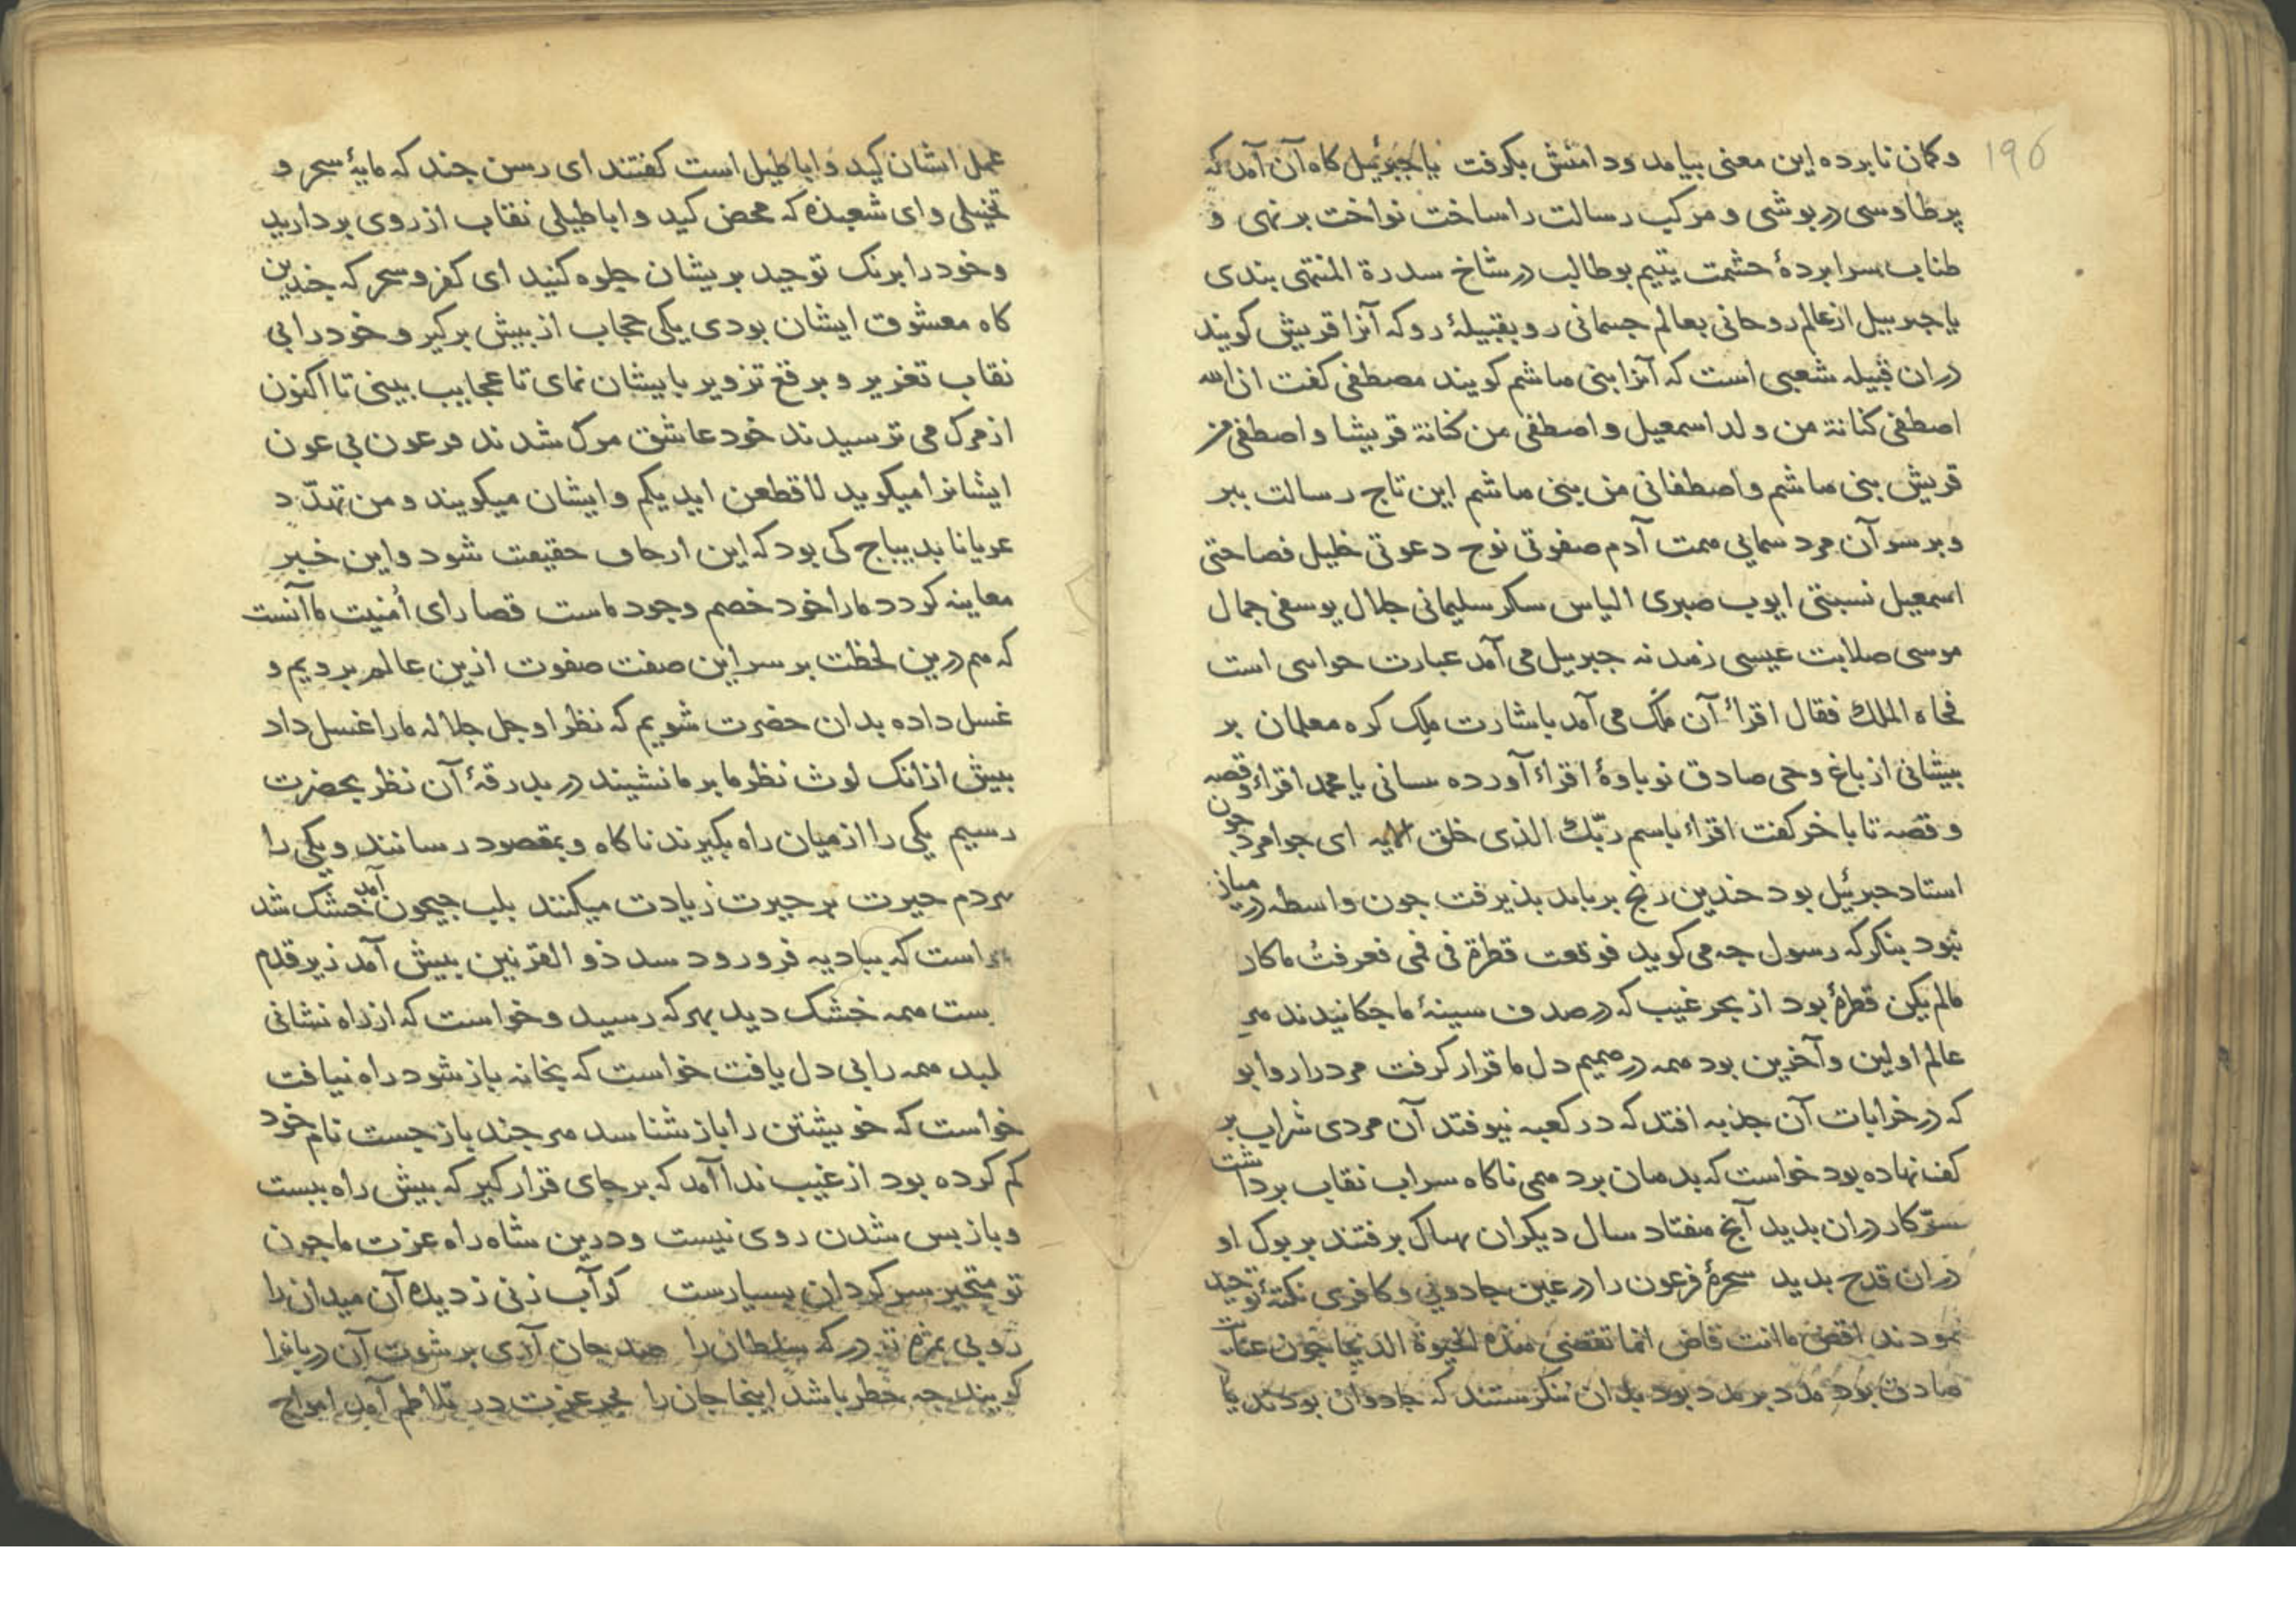 ۱۹۵
و کمان نابرده این معنی بیامد و دامنش بکرفت یا جبرئیل کاه آن آمد که
پر طاوسی درپوشی و مرکب رسالت را ساخت نواخت بر نهی و
طناب سرابردهٔ حشمت یتیم بوطالب در شاخ سدرة المنتهی بندی
یا جبرییل از عالم روحانی بعالم جسمانی رو بقبیلهٔ رو که آنرا قریش کویند
در ان قبیله شعبی است که آنرا بنی هاشم کویند مصطفی کفت ان الله
اصطفی کنانة من ولد اسمعیل و اصطفی من کنانة قریشا و اصطفی من
قریش بنی هاشم و اصطفانی من بنی هاشم این تاج رسالت ببر
و بر سر آن مرد سمایی همت آدم صفوتی نوح دعوتی خلیل فصاحتی
اسمعیل نسبتی ایوب صبری الیاس سکر سلیمانی جلال یوسفی جمال
موسی صلابت عیسی زهد نه جبرییل می آمد عبارت حواسی است
فجاه الملك فقال اقراء آن ملک می آمد باشارت ملک کره معلمان بر
پیشانی از باغ وحی صادق نوباوهٔ اقراء آورده سانی یا محمد اقراء و قصه
و قصه تا باخر کفت اقراء باسم ربّك الذی خلق الایه ای جوامرد چون
استاد جبرئیل بود خندین رنج بر باید بذیرفت جون واسطه در میان
نبود بنکر که رسول جه می کوید فوقعت قطرة فی فمی فعرفت ما کان
مالم یکن قطرهٔ بود از بحر غیب که در صدف سینهٔ ما جکانیدند هر
عالم اولین و آخرین بود همه در صمیم دل ما قرار کرفت مرد دار وابو
که در خرابات آن جذبه افتد که در کعبه نیوفتد آن مردی شراب بر
کف نهاده بود خواست که بدهان برد همی ناکاه سراب نقاب برداشت
سرّ کار در ان بدید آنج هفتاد سال دیکران بهساک برفتند بر بوک او
در ان قدح بدید سحرهٔ فرعون را در عین جادویی و کافری نکتهٔ توحید
نمودند اقض ما انت قاض انما تقضی هذه الحیوة الدنیا جون عنایت
صادق بود مدد بر مدد بود بدان ننکرستند که جادوان بودند یا
عمل ایشان کید و اباطیل است کفتند ای رسن جند که مایهٔ سحر و
تخیلی و ای شعبذه که محض کید و اباطیلی نقاب از روی بردارید
و خود را برنک توحید بریشان جلوه کنید ای کفر و سحر که خندین
کاه معشوق ایشان بودی یکی حجاب از پیش برکیر و خود را بی
نقاب تغریر و برقع تزویر بایشان نمای تا عجایب بینی تا اکنون
از مرک می ترسیدند خود عاشق مرک شدند فرعون بی عون
ایشانرا میکوید لاقطعن ایدیکم و ایشان میکویند و من تهدّد
عریانا بدیباج کی بود که این ارجاف حقیقت شود و این خبر
معاینه کردد مارا خود خصم وجود ماست قصارای اُمنیت ما آنست
که هم درین لحظت بر سر این صفت صفوت ازین عالم برویم و
غسل داده بدان حضرت شویم که نظر او جل جلاله مارا غسل داد
پیش از انک لوث نظر ما بر ما نشیند در بدرقهٔ آن نظر بحضرت
رسیم یکی را از میان راه بکیرند ناکاه و بمقصود رسانند و یکی را
هردم حیرت بر حیرت زیادت میکنند بلب جیحون آمد خشک شد
است که ببادیه فرو رود سد ذو القرنین پیش آمد زیر قدم
بست همه خشک دید بهر که رسید و خواست که از راه نشانی
لبد همه را بی دل یافت خواست که بخانه باز شود راه نیافت
خواست که خویشتن را باز شناسد هر جند باز جست نام خود
کم کرده بود از غیب ندا آمد که بر جای قرار کیر که پیش راه بیست
و باز پس شدن روی نیست و درین شاه راه عزت ما جون
تو متحیر سرکردان بسیارست کو آب زنی ز دیده آن میدان را
روبی بمژه تو درکه سلطان را صد جان آری بر شوت آن دربانرا
کویند جه خطر باشد اینجا جان را بحر عزت در تلاطم آمد امواج